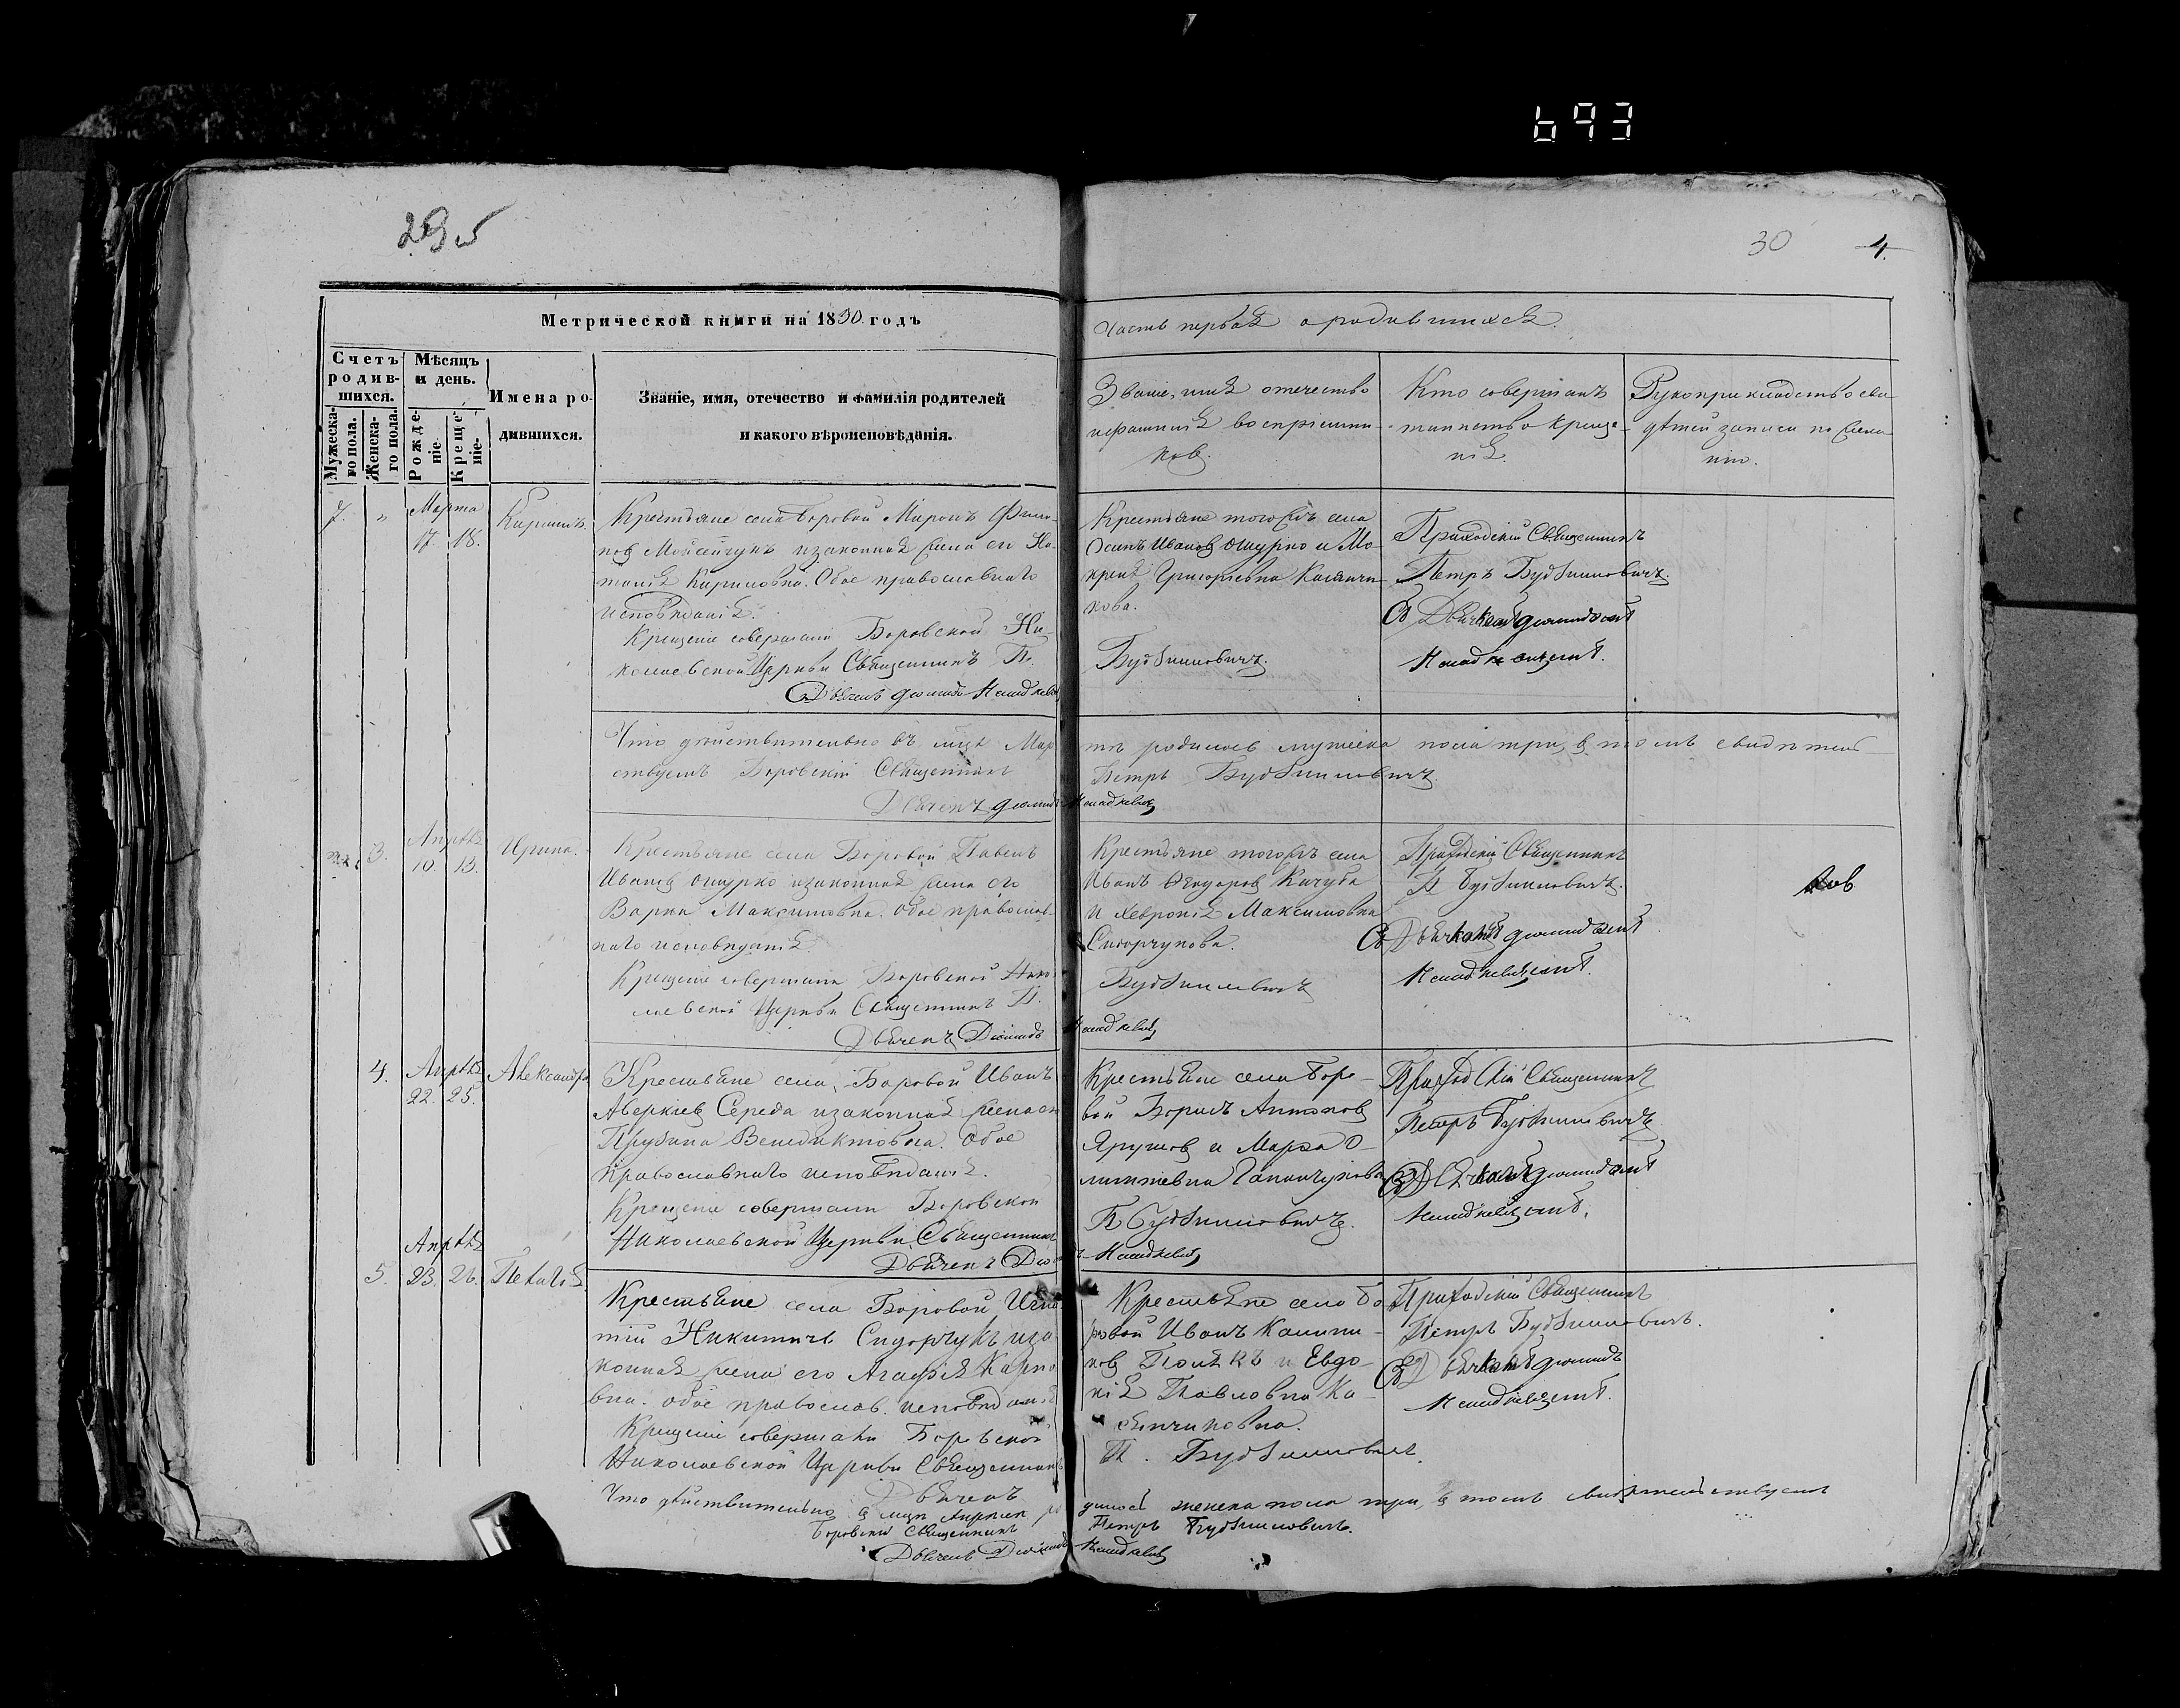 693
30 4.
Метрической книги на 18 годъ
Часть первая о родившихся.
Счетъ родив-
шихся.
Мужеска-
го пола.
Женска-
го пола.
Мѣсяцъ
и день.
Рожде-
ніе
Креще-
ніе.
Имена ро-
дившихся.
Званіе, имя, отечество и фамилія родителей
и какого вѣроисповѣданія.
Званіе, имя отечество
и фамилія воспріемни-
ковъ.
Кто совершалъ
таинство креще-
нія.
Рукоприкладство сви-
дѣтелей записи по жела-
нію.
7. "
Марта
17. 18.
Кириллъ.
Крестьяне села Боровой Миронъ Фили-
повъ Мойсейчукъ и законная жена его На-
талія Кириловна. Обое православнаго
исповѣданія.
Крещеніе совершали Боровской Ни-
колаевской Церкви Священникъ П.
Дьячекъ
Крестьяне того жъ села
Осипъ Ивановъ Ошурко и Мо-
крена Григорьевна Касянчи-
кова.
Будзиловичъ.
Приходскій Священникъ
Петръ Будзиловичъ.
Съ Дьячкомъ
Что дѣйствительно въ мцѣ Мар
тѣ родилось мужеска пола три, въ томъ свидѣтель
ствуетъ Боровскій Священникъ
Петръ Будзиловичъ.
Дьячекъ
3.
Апрѣля
10. 13.
Ирина.
Крестьяне села Боровой Павелъ
Ивановъ Ошурко и законная жена его
Варка Максимовна. Обое православ-
наго исповѣданія
Крещеніе совершали Боровской Нико
лаевской Церкви Священникъ П.
Дьячекъ
Крестьяне того жъ села
Иванъ Ѳеодоровъ Качуба
и Хевронія Максимовна
Сидорчукова.
Будзиловичъ
Приходскій Священникъ
П Будзиловичъ.
Съ Дьячкомъ
4.
Апрѣля
22. 25.
Александра
Крестьяне села Боровой Иванъ
Аверкіевъ Середа и законная жена его
Прузина Венедиктовна. Обое
православнаго исповѣданія.
Крещеніе совершали Боровской
Николаевской Церкви Священникъ
Дьячекъ
Крестьяне села Боро-
вой Борисъ Антоновъ
и Марѳа
Гапанчукова
П Будзиловичъ.
Приходскій Священникъ
Петръ Будзиловичъ
Съ Дьячкомъ
5.
Апрѣля
23. 26.
Пелагія
Крестьяне села Боровой Игна
тій Никитичъ Сидорчукъ и за-
конная жена его Агафія Карпо
вна. обое православ. исповѣданія
Крещеніе совершали Боровской
Николаевской Церкви Священникъ
Дьячекъ
Крестьяне села Бо
ровой Иванъ Калини-
ковъ Полякъ и Евдо-
кія Павловна Ка-
сянчиковна.
П. Будзиловичъ.
Приходскій Священникъ
Петръ Будзиловичъ.
Съ Дьячкомъ
Что дѣйствительно въ мцѣ Апрѣлѣ ро
дилось женска пола три, въ томъ свидѣтельствуетъ
Боровскій Священникъ
Петръ Будзиловичъ.
Дьячекъ